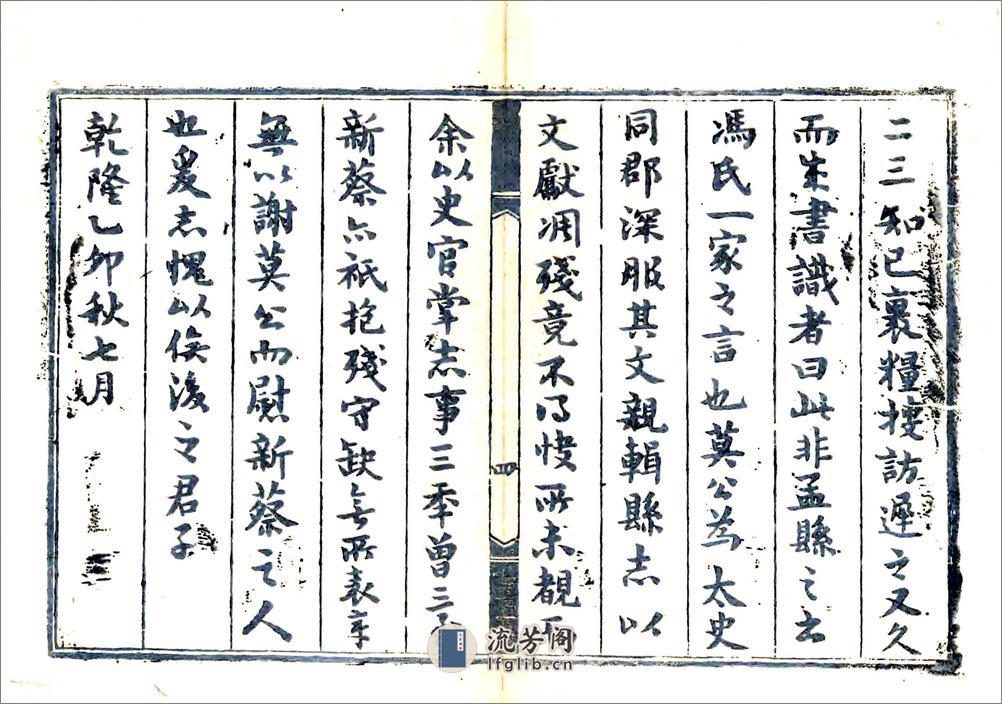 二三知已裹糧搜訪遲之又久
而生書識者曰此非孟縣之書
馮氏一家之言也莫公為太史
同郡深服其文親輯縣志以
文獻凋殘竟不得快所未覩而
余以史官掌志事三季曾三
新蔡亦祇抱殘守缺無所表章
無以謝莫公而慰新蔡之人
也爰志愧以俟後之君子
乾隆乙卯秋七月
四
流芳阁
lfglib.cn